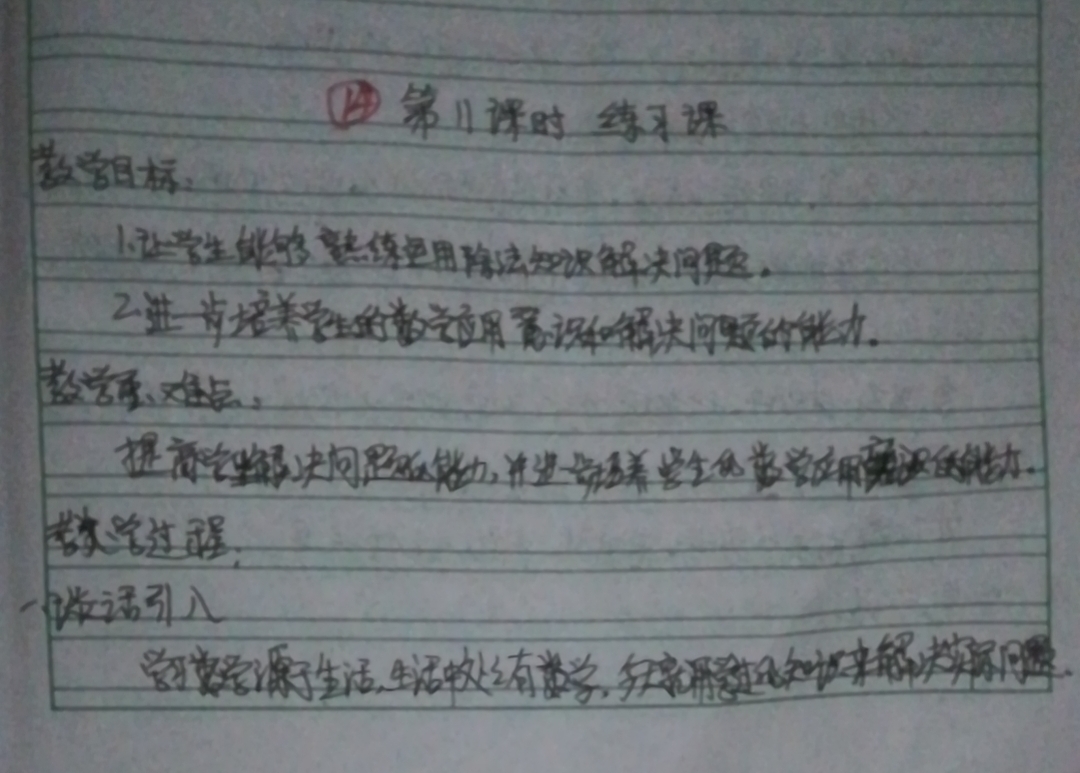 14 第11课时 练习课
教学目标:
1.让学生能够熟练运用除法知识解决问题。
2.进一步培养学生的数学应用意识和解决问题的能力。
教学重、难点:
提高学生解决问题的能力,并进一步培养学生的数学应用意识的能力.
教学过程:
一、谈话引入
学习数学源于生活,生活中处处有数学,知识来解决实际问题.